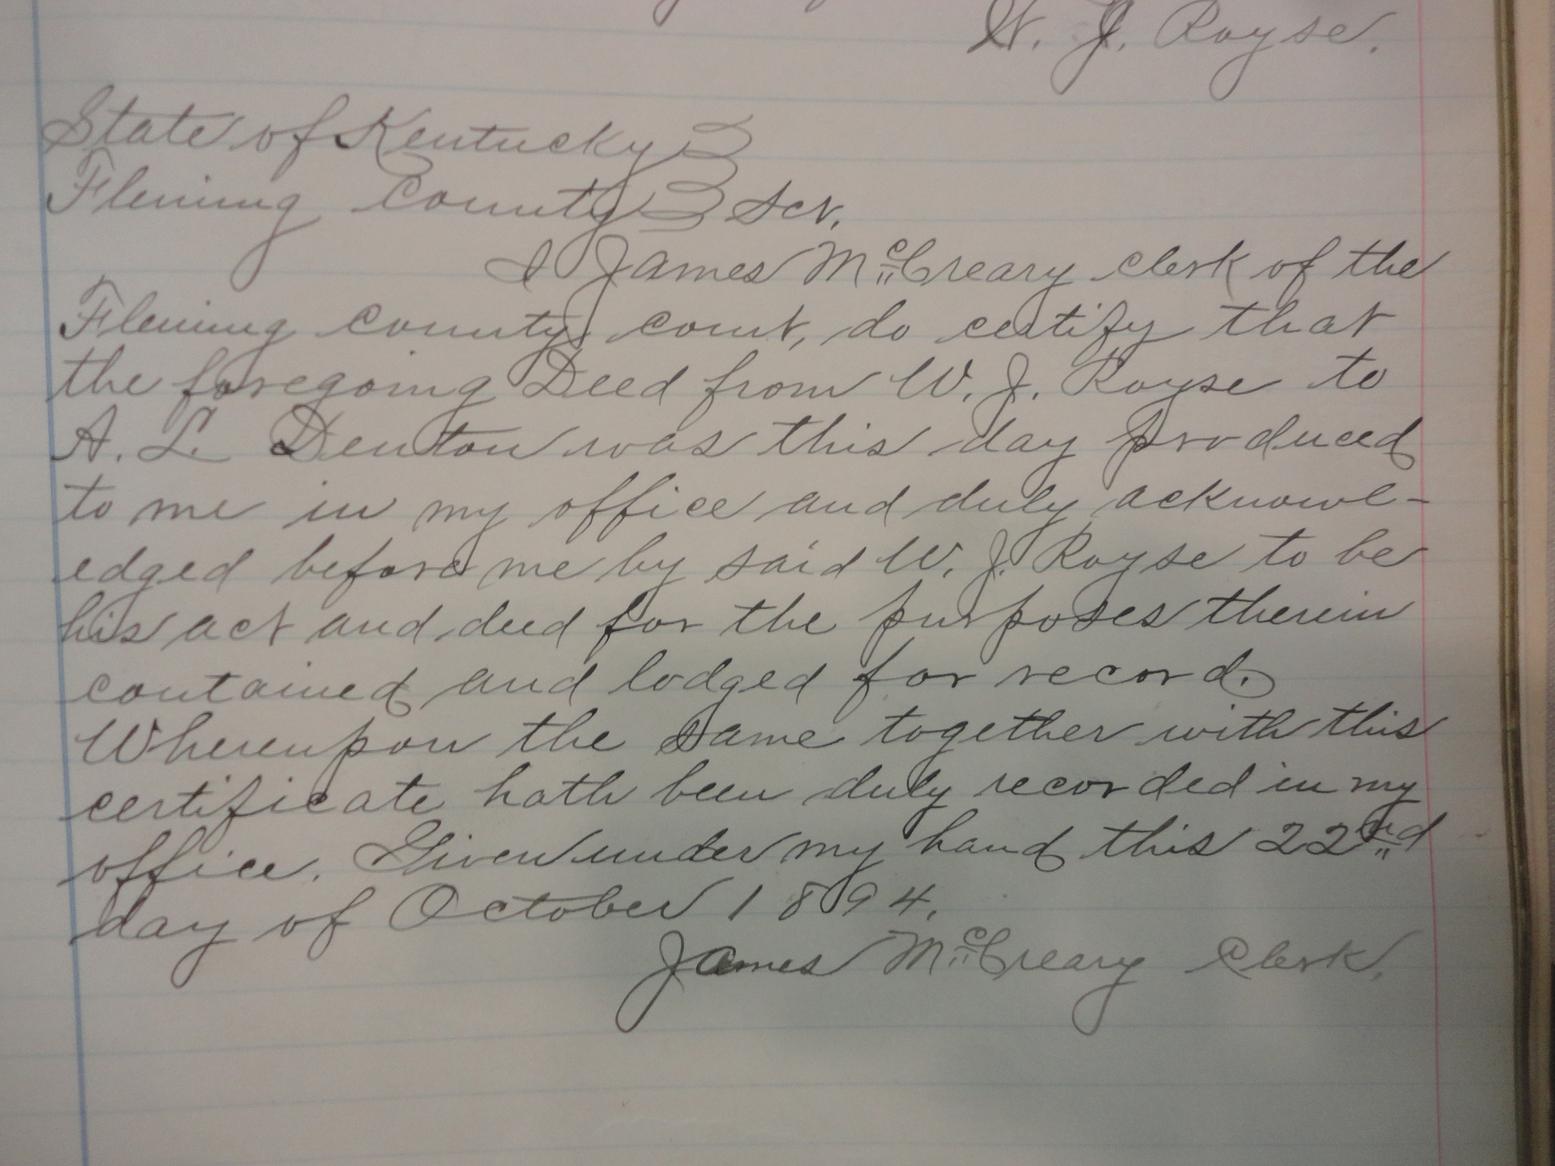 W. J. Royse.
State of Kentucky }
Fleming County } Sct.
I James McCreary clerk of the
Fleming county court, do certify that
the foregoing Deed from W. J. Royse to
A. L. Denton was this day produced
to me in my office and duly acknowl-
edged before me by said W. J. Royse to be
his act and deed for the purposes therein
contained and lodged for record.
Whereupon the same together with this
certificate hath been duly recorded in my
office. Given under my hand this 22nd
day of October 1894.
James McCreary Clerk.